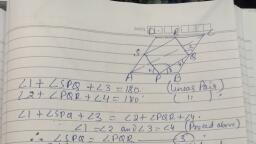 D R C
S Q
A P B
∠1 + ∠SPQ + ∠3 = 180 (Linear Pair)
∠2 + ∠PQR + ∠4 = 180 ( " )
∠1 + ∠SPQ + ∠3 = ∠2 + ∠PQR + ∠4.
∠1 = ∠2 and ∠3 = ∠4 (Proved above)
∴ ∠SPQ = ∠PQR